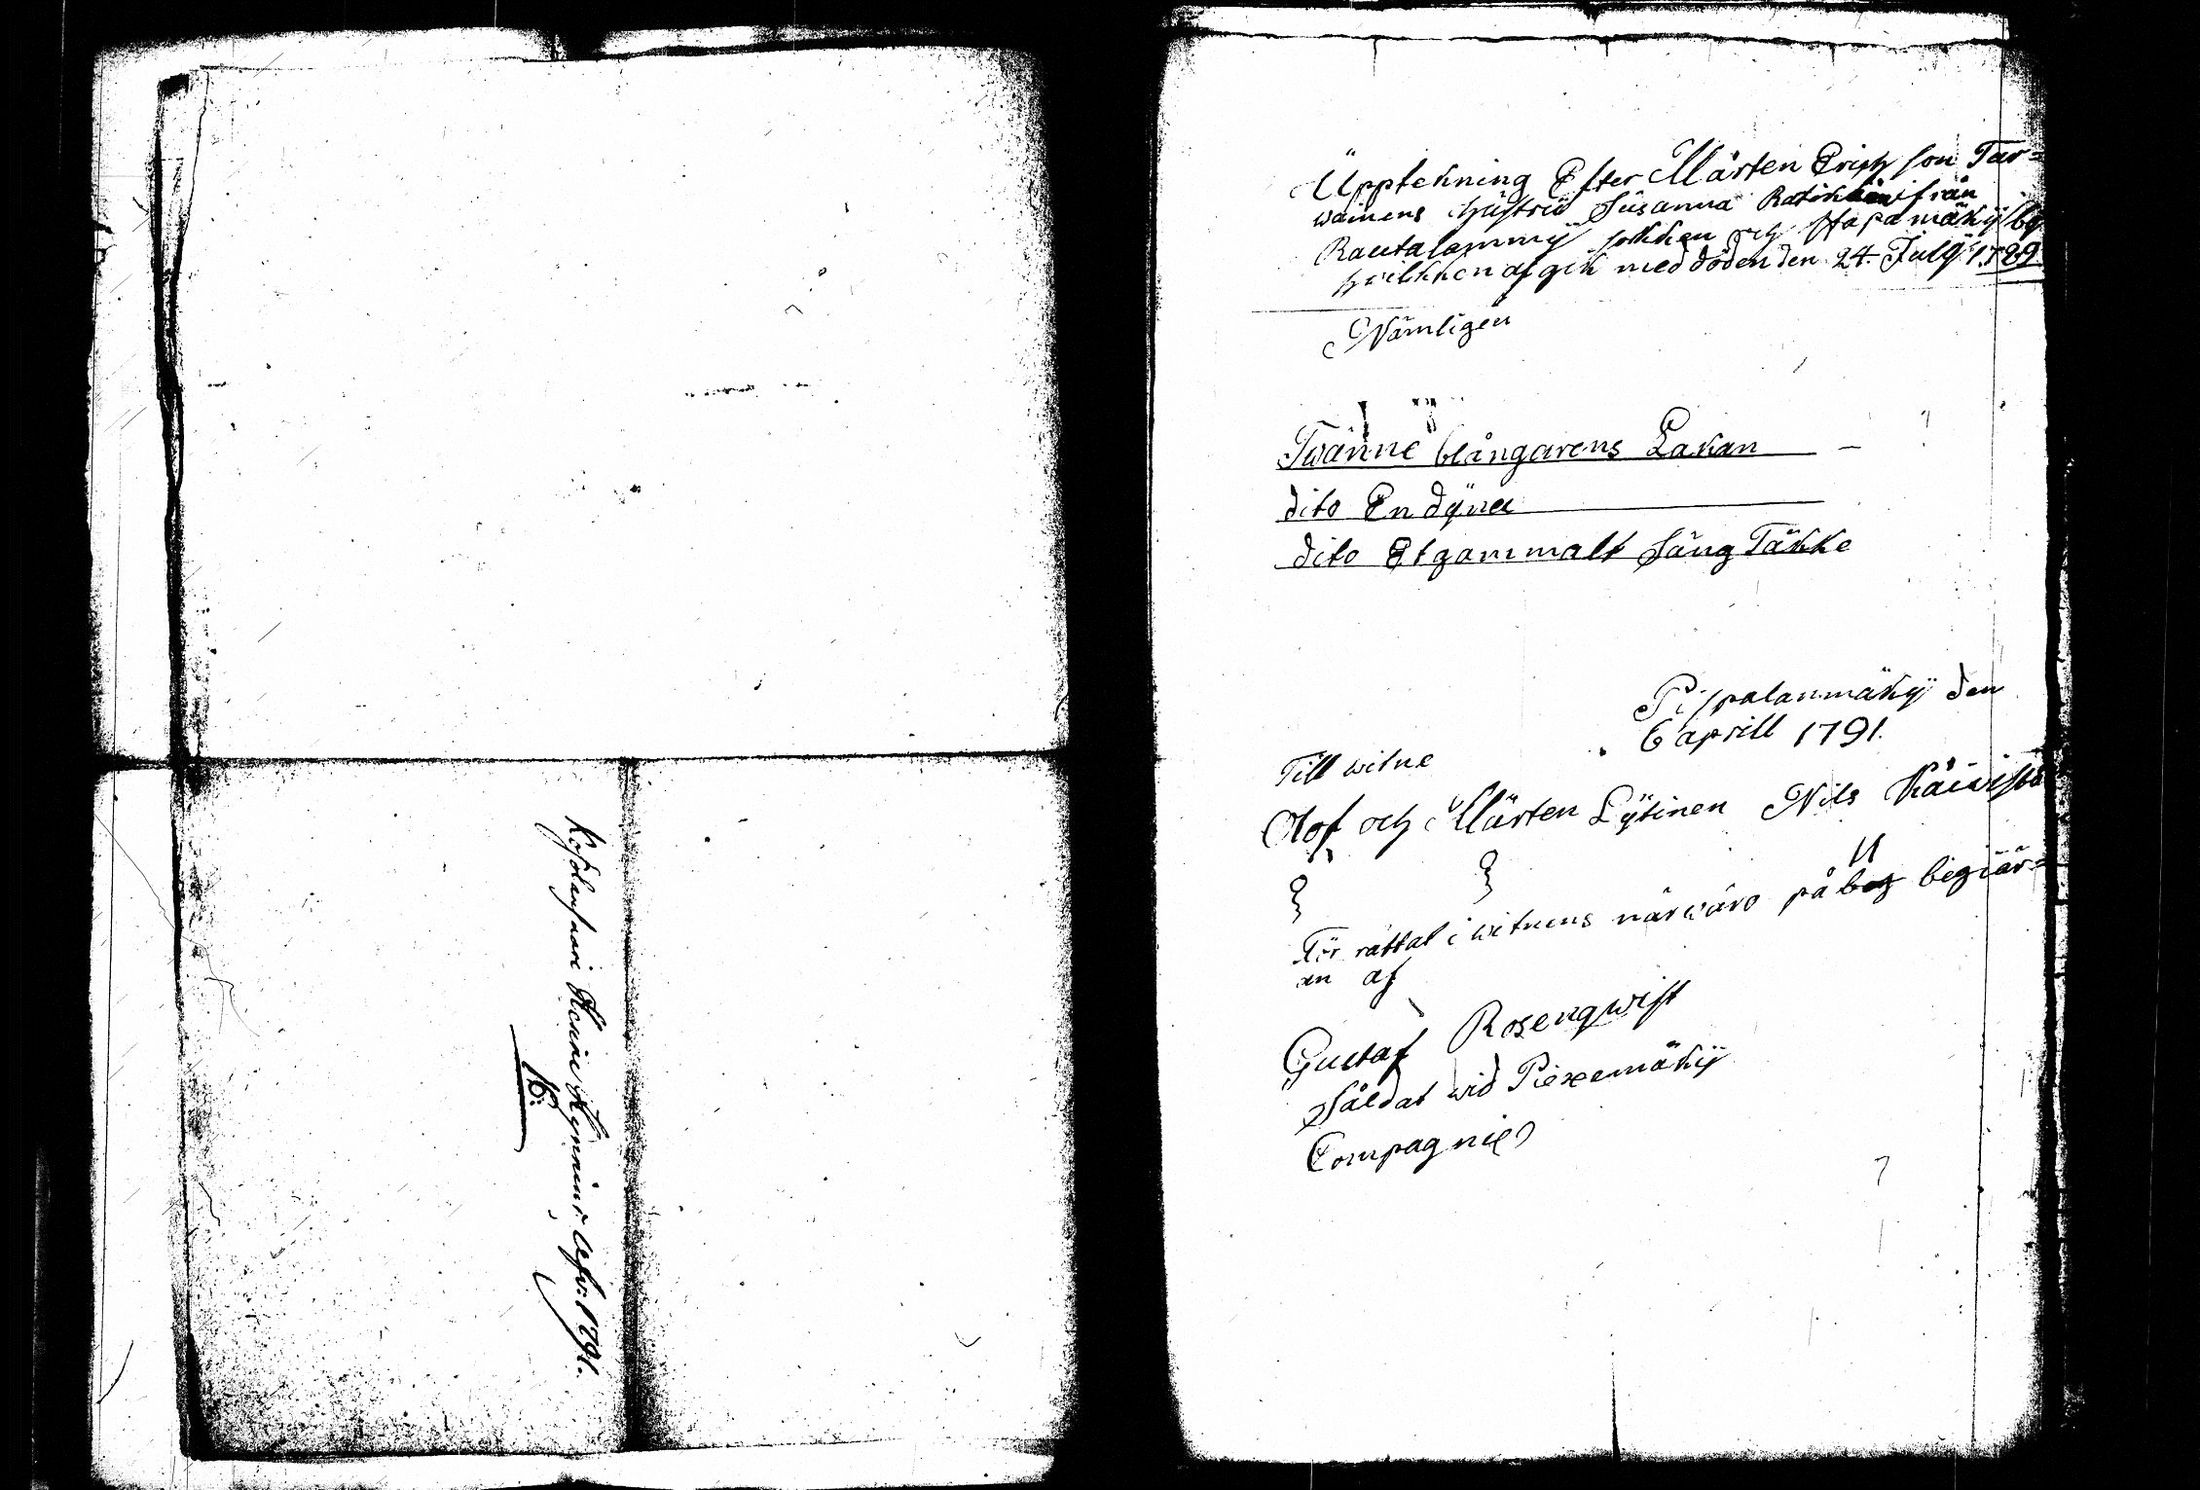 Henric Hyninen
1791.
16.
Upptekning Efter Mårten Erich son Tar=
wainens hustru Susanna från
Rautalammÿ sokken och Hapamäkÿ by
hvilkken afgik med döden den 24. Julÿ 1789
Nämligen
Twänne blångarens Lakan
dito En dÿna
dito Et gammalt Säng Täkke
Pispalanmäkÿ den
6 aprill 1791.
Till witne
Olof och Mårten Lÿtinen Nils
För rättat i witnens närwäro på begiär=
an af
Gustaf Rosenqwist
Såldat wid Piexemäkÿ
Compagnie